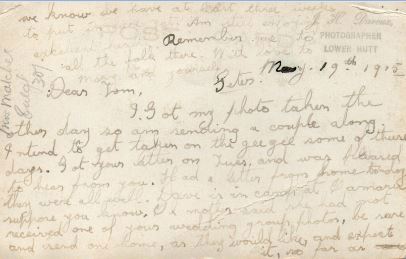 we know we have at least three weeks
to put in here yet. Am
Remember me to
all the folk there. With love to
Mary and yourself
J. H. Daroux,
PHOTOGRAPHER
LOWER HUTT
Peter. May. 19th 1915
Dear Tom,
I got my photo taken the
other day so am sending a couple along.
I intend to get taken on the gee gee some of these
days. I got your letter on Tues, and was pleased
to hear from you. Had a letter from home today
they were all well. Dave is in camp at Tamaris
suppose you know, & mother said he had not
received one of your wedding group photos, be sure
and send one home, as they would like and expect
it, so far as